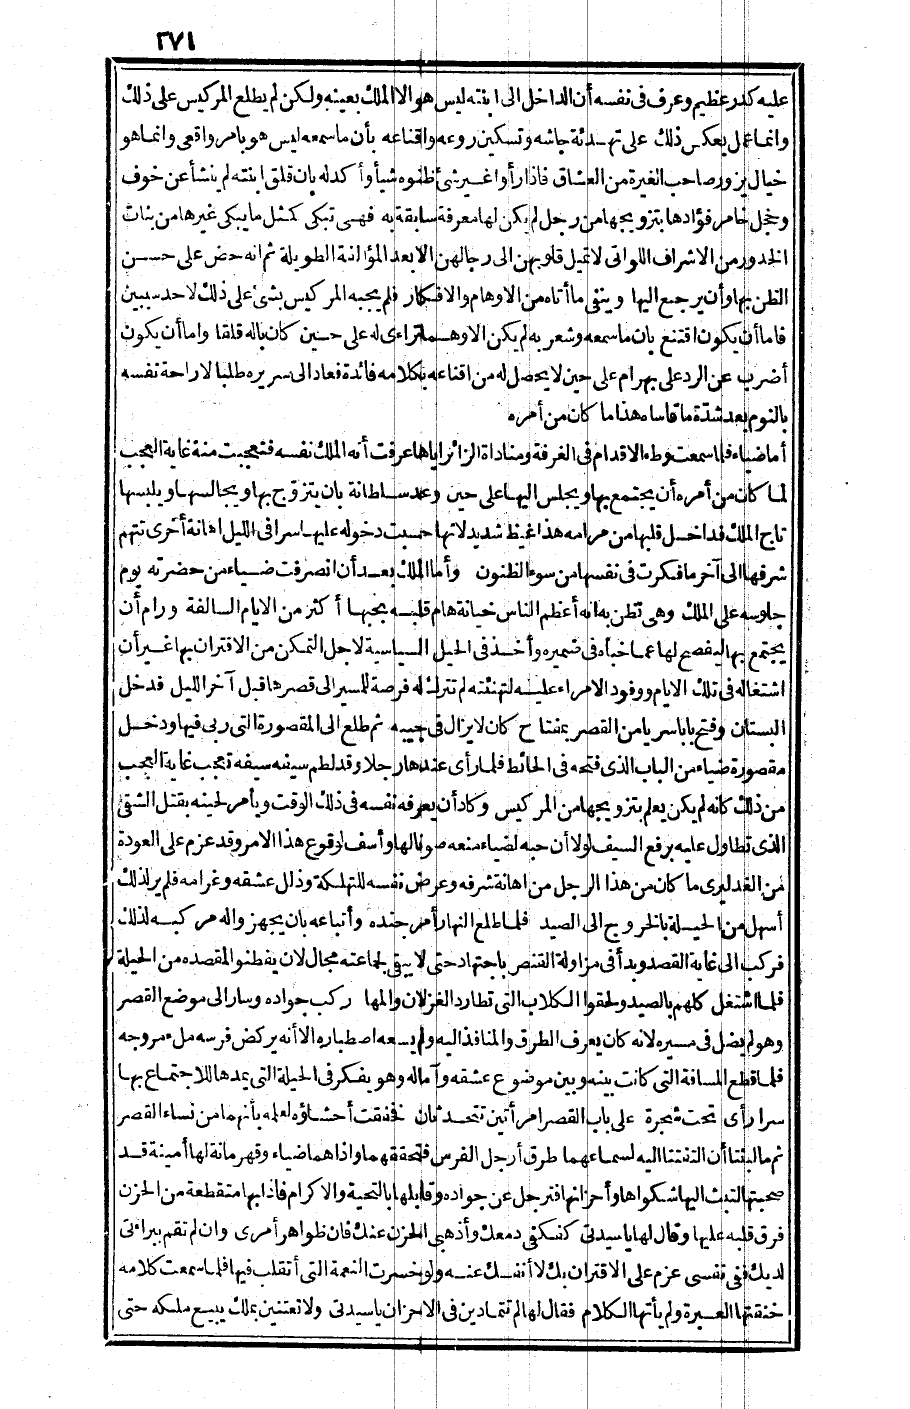 ٢٧١
عليه كدر عظيم وعرف فى نفسه أن الداخل الى ابنته ليس هو الا الملك بعينه ولكن لم يطلع المركيس على ذلك
وانما عمل بعكس ذلك على تهدئة جاشه وتسكين روعه واقناعه بأن ما سمعه ليس هو بامر واقعى وانما هو
خيال يزور صاحب الغيرة من العشاق فاذا رأوا غير شئ ظنوه شيأ وأكد له بان قلق ابنته لم ينشأ عن خوف
وخجل خامر فؤادها بتزويجها من رجل لم يكن لها معرفة سابقة به فهى تبكى كمثل ما يبكى غيرها من بنات
الخدور من الاشراف اللواتى لا تميل قلوبهن الى رجالهن الا بعد المؤالفة الطويلة ثم انه حض على حسن
الظن بها وأن يرجع اليها وينفى ما أتاه من الاوهام والافكار فلم يجبه المركيس بشئ على ذلك لاحد سببين
فاما أن يكون اقتنع بان ما سمعه وشعر به لم يكن الا وهما تراءى له على حين كان باله قلقا واما أن يكون
أضرب عن الرد على بهرام على حين لا يحصل له من اقناعه بكلامه فائدة فعاد الى سريره طلبا لاراحة نفسه
بالنوم بعد شدّة ما قاساه هذا ما كان من أمره
أما ضياء فلما سمعت وطء الاقدام فى الغرفة ومناداة الزائر اياها عرفت أنه الملك نفسه فتعجبت منه غاية العجب
لما كان من أمره أن يجتمع بها ويجلس اليها على حين وعد سلطانة بان يتزوّج بها ويجالسها ويلبسها
تاج الملك فداخل قلبها من مرامه هذا غيظ شديد لانها حسبت دخوله عليها سرا فى الليل اهانة أخرى تتهم
شرفها الى آخر ما فكرت فى نفسها من سوء الظنون وأما الملك بعد أن انصرفت ضياء من حضرته يوم
جلوسه على الملك وهى تظن به انه أعظم الناس خيانة هام قلبه بحبها أكثر من الايام السالفة ورام أن
يجتمع بها ليفصح لها عما خبأه فى ضميره وأخذ فى الحيل السياسية لاجل التمكن من الاقتران بها غير أن
اشتغاله فى تلك الايام ووفود الامراء عليه لتهنئته لم تترك له فرصة للمسير الى قصرها قبل آخر الليل فدخل
البستان وفتح بابا سريا من القصر بمفتاح كان لا يزال فى جيبه ثم طلع الى المقصورة التى ربى فيها ودخل
مقصورة ضياء من الباب الذى فتحه فى الحائط فلما رأى عندها رجلا وقد لطم سيفه سيفه تعجب غاية العجب
من ذلك كانه لم يكن يعلم بتزويجها من المركيس وكاد أن يعرفه نفسه فى ذلك الوقت ويأمر لحينه بقتل الشقى
الذى تطاول عليه برفع السيف لولا أن حبه لضياء منعه صونا لها وأسف لوقوع هذا الامر وقد عزم على العودة
من الغد ليرى ما كان من هذا الرجل من اهانة شرفه وعرض نفسه للتهلكة وذلل عشقه وغرامه فلم ير لذلك
أسهل من الحيلة بالخروج الى الصيد فلما طلع النهار أمر جنده وأتباعه بان يجهزوا له مركبه لذلك
فركب الى غاية القصد وبدأ فى مزاولة القنص باجتهاد حتى لا يبقى لجماعته مجال لان يفطنوا لمقصده من الحيلة
فلما اشتغل كلهم بالصيد ولحقوا الكلاب التى تطارد الغزلان والمها ركب جواده وسار الى موضع القصر
وهو لم يضل فى مسيره لانه كان يعرف الطرق والمنافذ اليه ولم يسعه اصطباره الا أنه يركض فرسه ملء مروجه
فلما قطع المسافة التى كانت بينه وبين موضوع عشقه وآماله وهو يفكر فى الحيلة التى يمدها للاجتماع بها
سرا رأى تحت شجرة على باب القصر امرأتين تتحدثان فخفقت أحشاؤه لعلمه بأنهما من نساء القصر
ثم ما لبثتا أن التفتتا اليه لسماعهما طرق أرجل الفرس فتحققهما واذا هما ضياء وقهرمانة لها أمينة قد
صحبتها لتبث اليها شكواها وأحزانها فترجل عن جواده وقابلها بالتحية والاكرام فاذا بها متقطعة من الحزن
فرق قلبه عليها وقال لها يا سيدتى كفكفى دمعك وأذهبى الحزن عنك فان ظواهر أمرى وان لم تقم ببراءتى
لديك ففى نفسى عزم على الاقتران بك لا أنفك عنه ولو خسرت النعمة التى أتقلب فيها فلما سمعت كلامه
خنقتها العبرة ولم يأتها الكلام فقال لها لم تتمادين فى الاحزان يا سيدتى ولا تعتنين بملك يبيع ملكه حتى